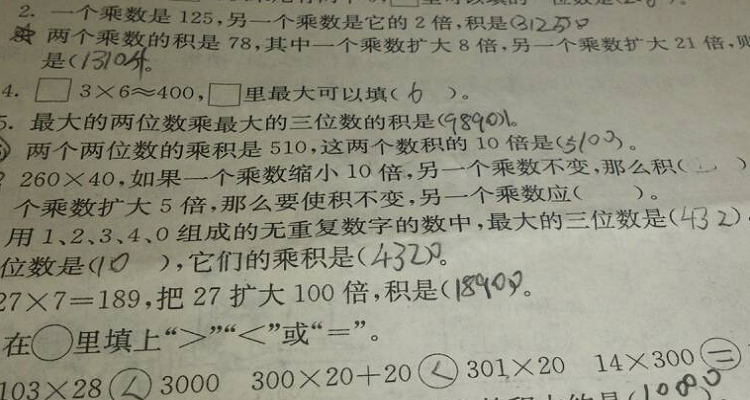 2. 一个乘数是 125,另一个乘数是它的 2 倍,积是(31250
两个乘数的积是 78,其中一个乘数扩大 8 倍,另一个乘数扩大 21 倍,则
是(13104)。
4. □ 3×6≈400,□里最大可以填( 6 )。
5. 最大的两位数乘最大的三位数的积是(98901)。
两个两位数的乘积是 510,这两个数积的 10 倍是(5100)。
260×40,如果一个乘数缩小 10 倍,另一个乘数不变,那么积( )
个乘数扩大 5 倍,那么要使积不变,另一个乘数应( )。
用 1、2、3、4、0 组成的无重复数字的数中,最大的三位数是(432)
位数是(10 ),它们的乘积是(4320)。
27×7=189,把 27 扩大 100 倍,积是(18900)。
在○里填上“>”“<”或“=”。
103×28 < 3000 300×20+20 < 301×20 14×300 =